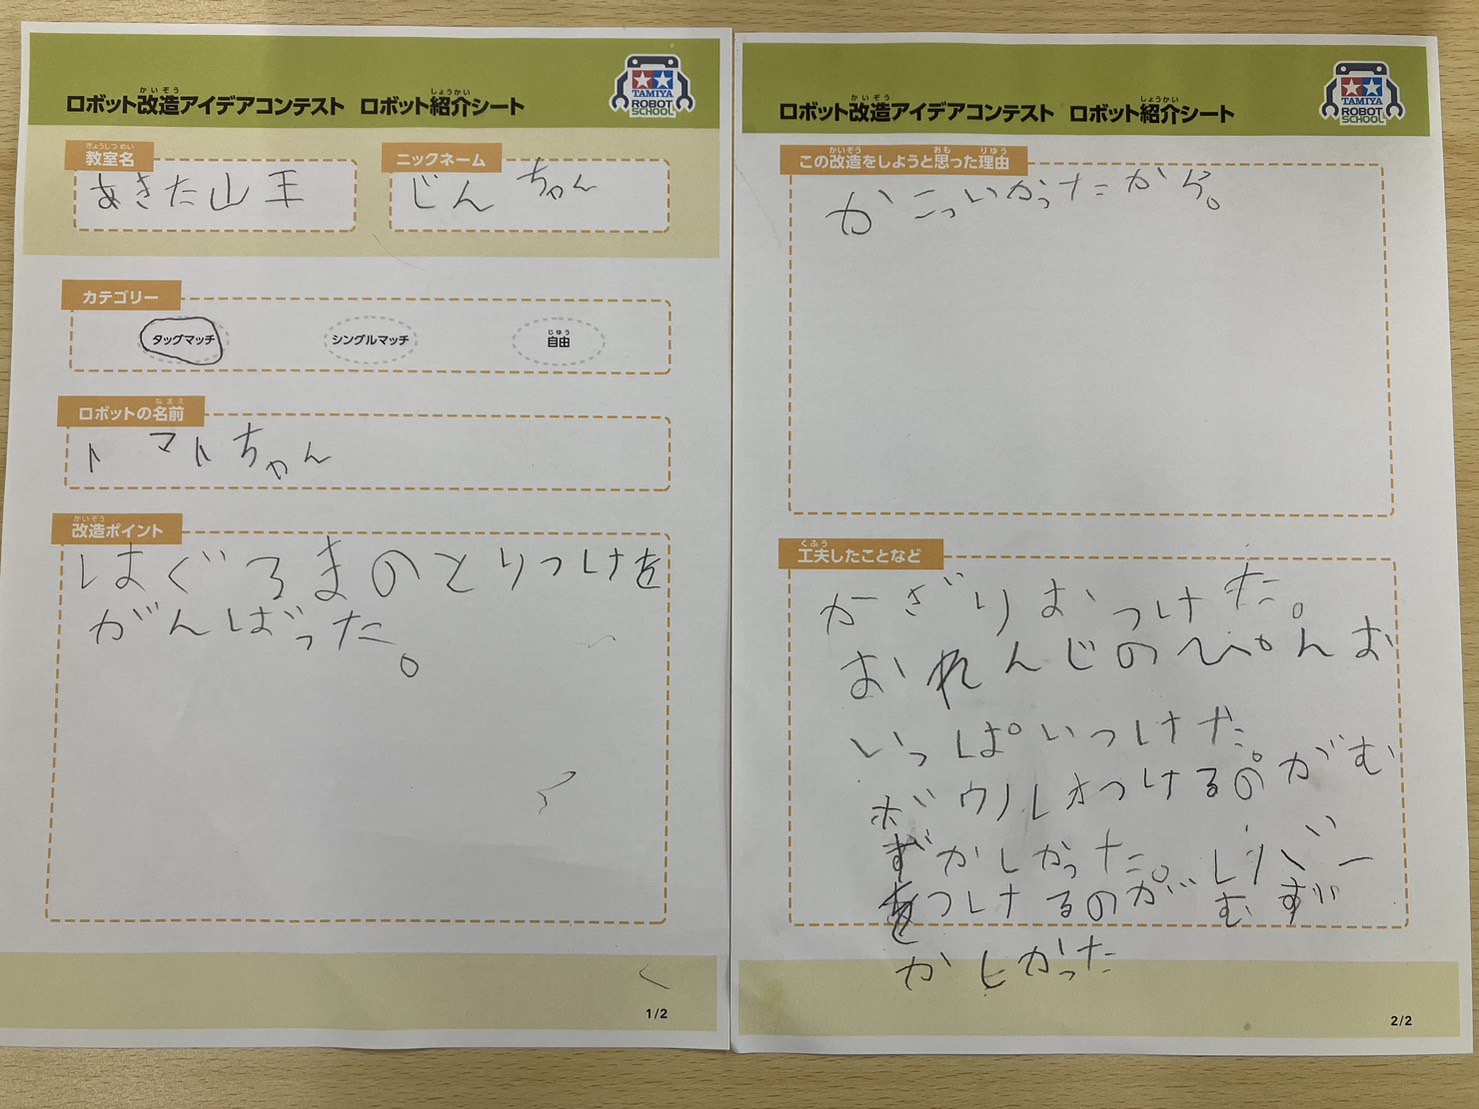 ロボット改造アイデアコンテスト ロボット紹介シート
かいぞう しょうかい
TAMIYA
ROBOT
SCHOOL
きょうしつ めい
教室名
あきた山王
ニックネーム
じんちゃん
カテゴリー
タッグマッチ
シングルマッチ
じゆう
自由
なまえ
ロボットの名前
トマトちゃん
かいぞう
改造ポイント
はぐろまのとりつけを
がんばった。
1/2
ロボット改造アイデアコンテスト ロボット紹介シート
かいぞう しょうかい
TAMIYA
ROBOT
SCHOOL
かいぞう おも りゆう
この改造をしようと思った理由
かこっいかったから。
くふう
工夫したことなど
かざりおつけた。
おれんじのぴんお
いっぱいつけた。
ボウルオつけるのがむ
ずかしかった。レバー
をつけるのがむず
かしかった
2/2